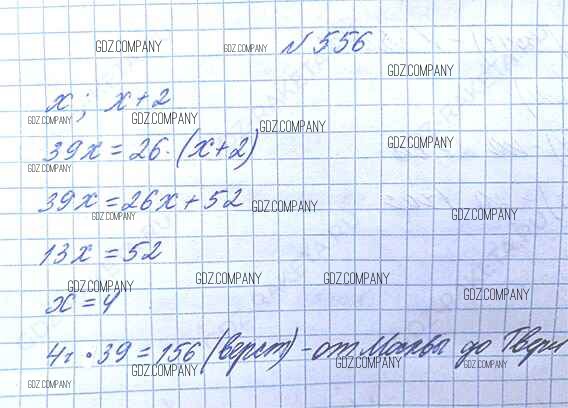 № 556
GDZ.COMPANY GDZ.COMPANY
GDZ.COMPANY
x; x+2
GDZ.COMPANY GDZ.COMPANY GDZ.COMPANY
39x = 26·(x+2)
GDZ.COMPANY GDZ.COMPANY
39x = 26x + 52
GDZ.COMPANY GDZ.COMPANY GDZ.COMPANY
13x = 52
GDZ.COMPANY GDZ.COMPANY GDZ.COMPANY
x = 4
GDZ.COMPANY
4 · 39 = 156 (верст) - от Москвы до Твери
GDZ.COMPANY GDZ.COMPANY GDZ.COMPANY
GDZ.COMPANY